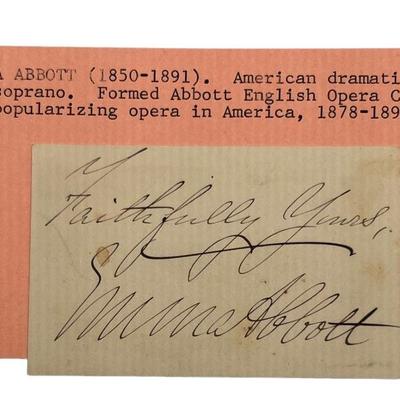 A ABBOTT (1850-1891). American dramati
soprano. Formed Abbott English Opera C
popularizing opera in America, 1878-189
Faithfully Yours,
Emma Abbott